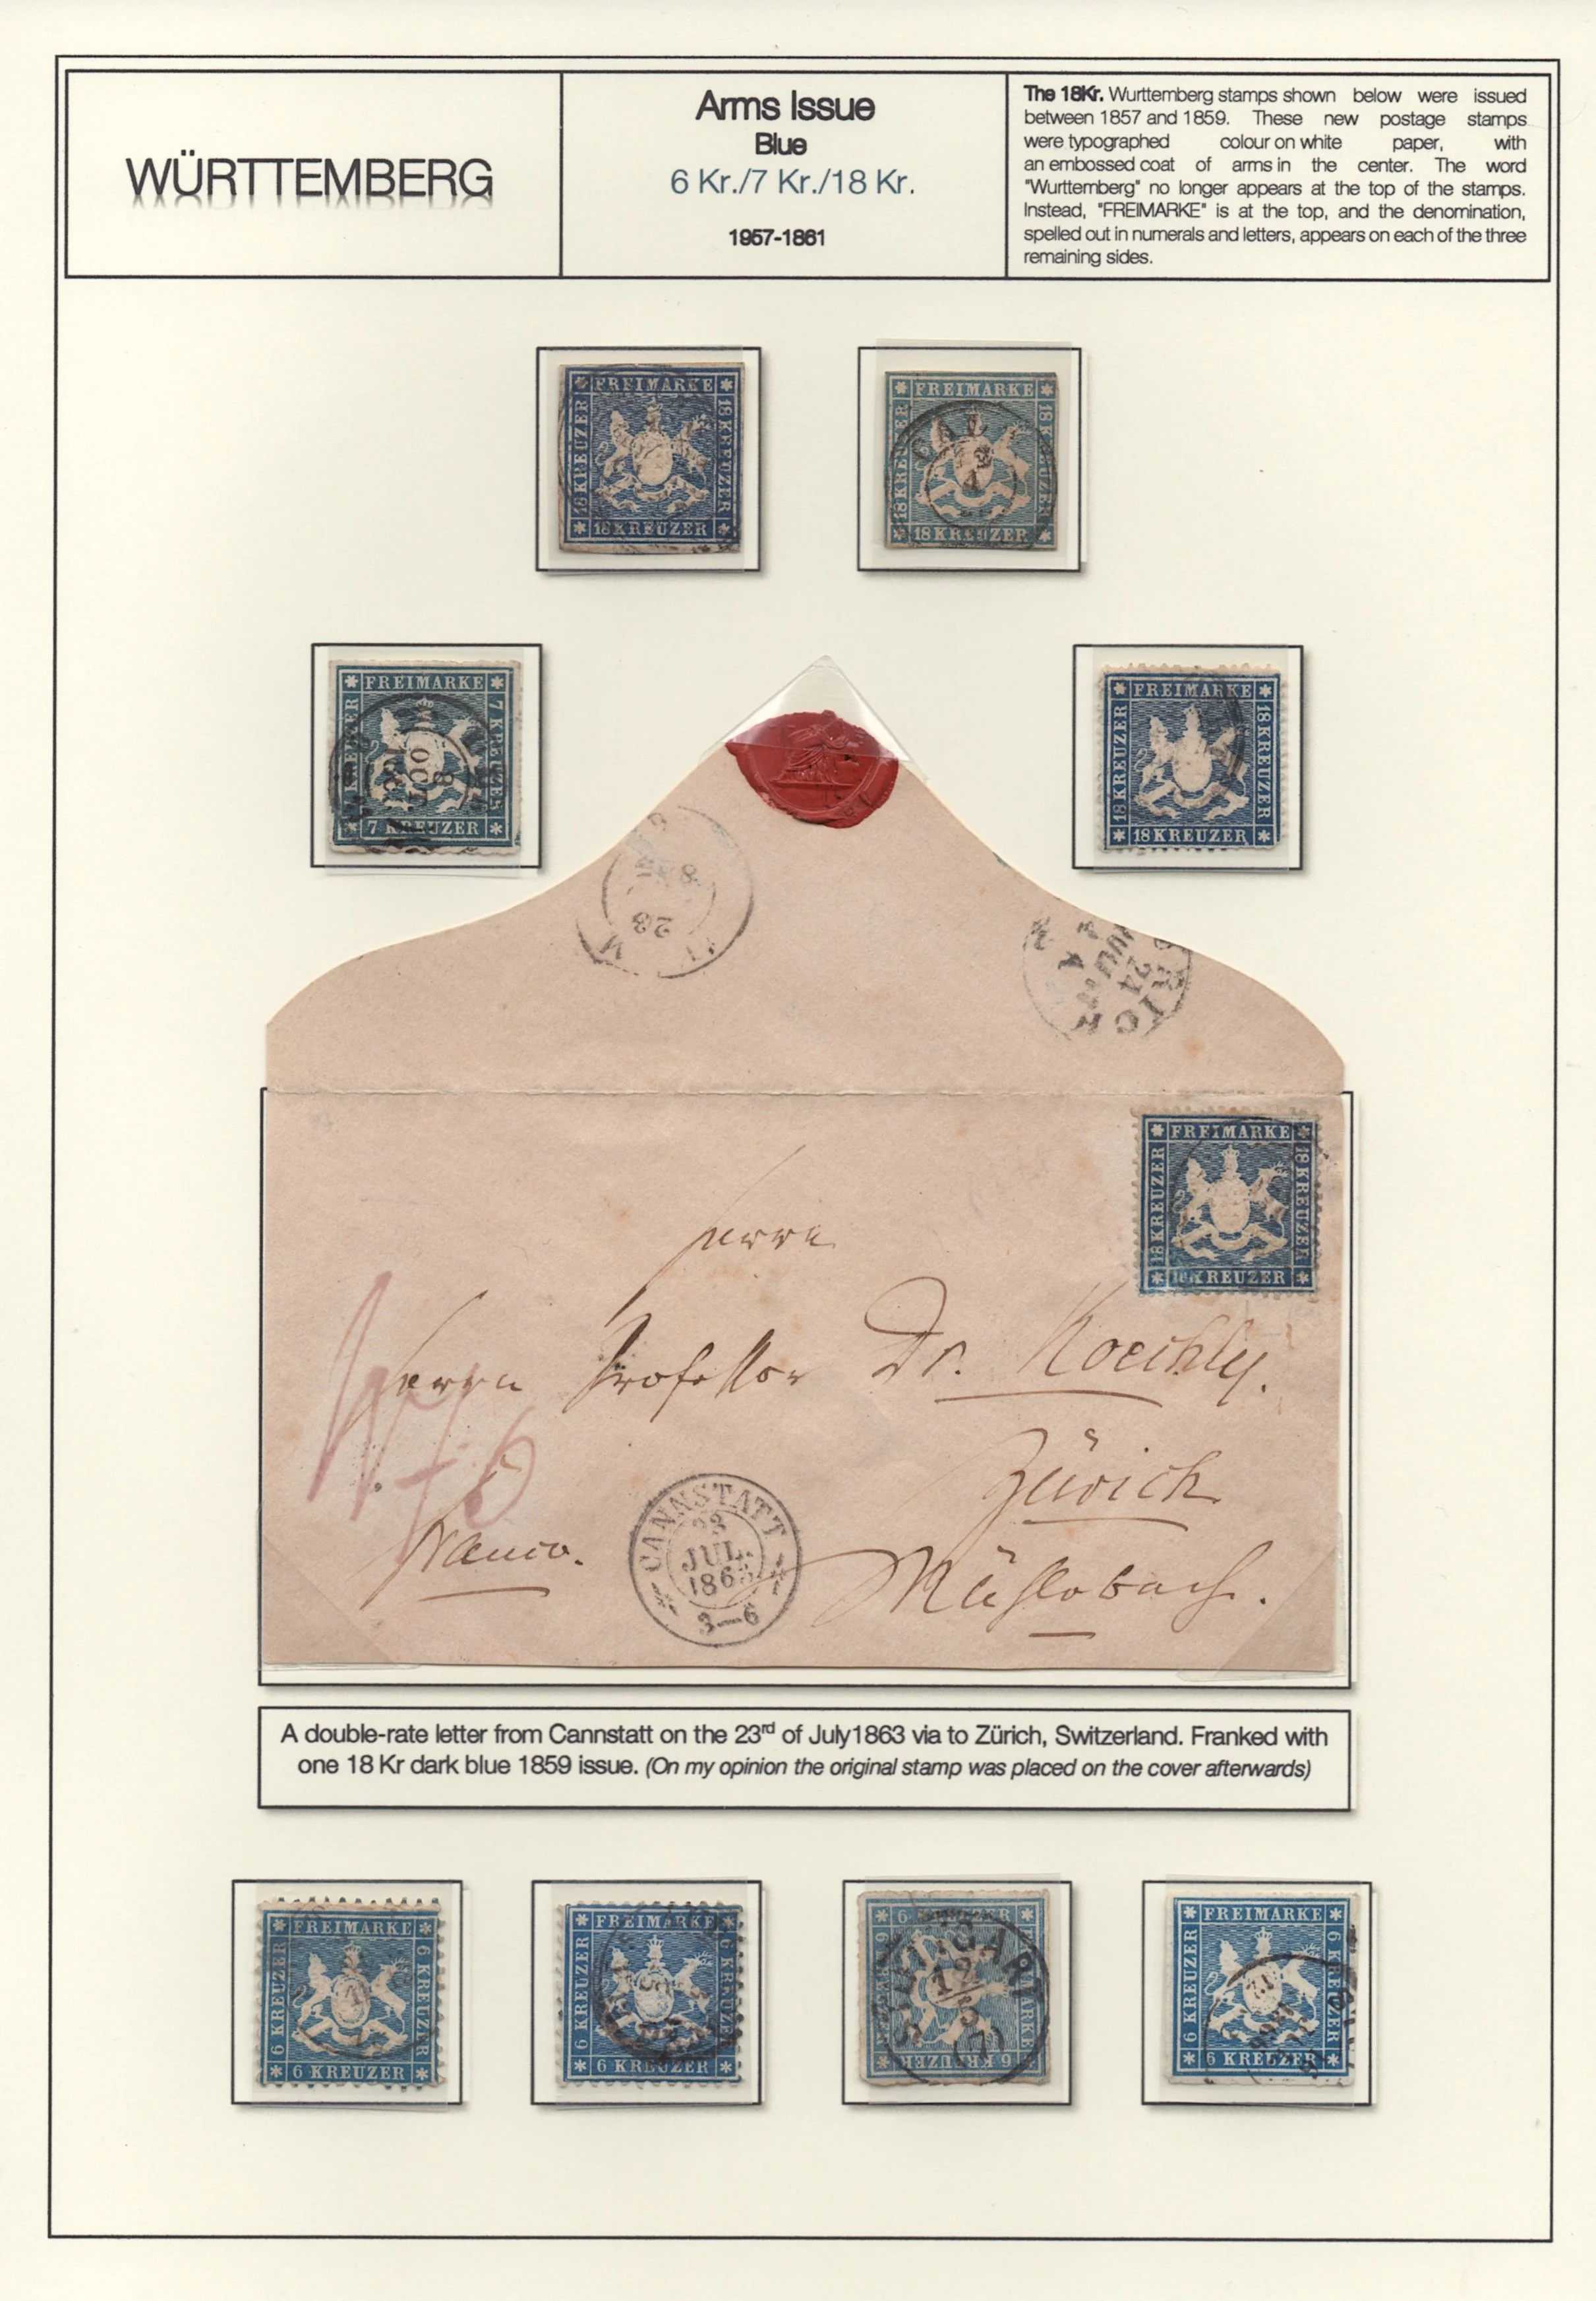 WÜRTTEMBERG
Arms Issue
Blue
6 Kr./7 Kr./18 Kr.
1957-1861
The 18Kr. Wurttemberg stamps shown below were issued
between 1857 and 1859. These new postage stamps
were typographed colour on white paper, with
an embossed coat of arms in the center. The word
"Wurttemberg" no longer appears at the top of the stamps.
Instead, "FREIMARKE" is at the top, and the denomination,
spelled out in numerals and letters, appears on each of the three
remaining sides.
FREIMARKE
18 KREUZER
18 KREUZER
18 KREUZER
FREIMARKE
18 KREUZER
18 KREUZER
18 KREUZER
FREIMARKE
7 KREUZER
7 KREUZER
FREIMARKE
18 KREUZER
18 KREUZER
18 KREUZER
23
24
FREIMARKE
18 KREUZER
18 KREUZER
KREUZER
Herrn
Herrn Professor Dr. Koechly.
Zürich
Franco.
Mühlebach.
CANNSTATT
23
JUL.
1863
3—6
A double-rate letter from Cannstatt on the 23rd of July1863 via to Zürich, Switzerland. Franked with
one 18 Kr dark blue 1859 issue. (On my opinion the original stamp was placed on the cover afterwards)
FREIMARKE
6 KREUZER
6 KREUZER
6 KREUZER
FREIMARKE
6 KREUZER
6 KREUZER
6 KREUZER
STUTTGART
12
5
FREIMARKE
6 KREUZER
6 KREUZER
6 KREUZER